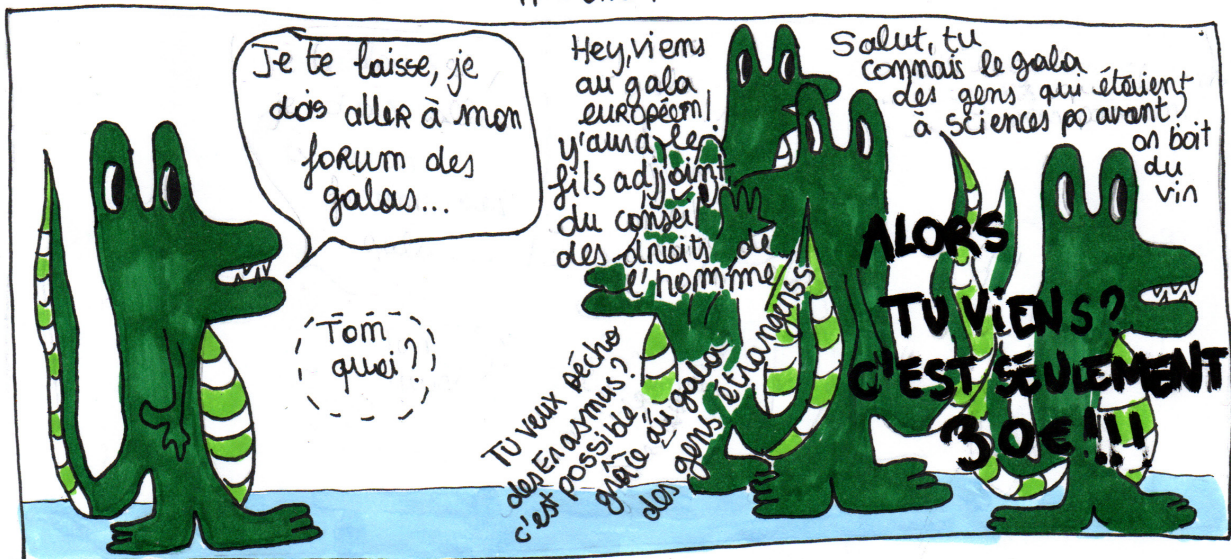 Je te laisse, je
dois aller à mon
forum des
galas...
Tom
quoi ?
Hey, viens
au gala
européen !
y'aura le
fils adjjoint
du conseil
des droits de
l'homme
Salut, tu
connais le gala
des gens qui étaient
à sciences po avant ?
on boit
du
vin
TU veux pécho
des Erasmus ?
c'est possible
grâce au gala
des gens étrangerss
ALORS
TU VIENS ?
C'EST SEULEMENT
30€!!!